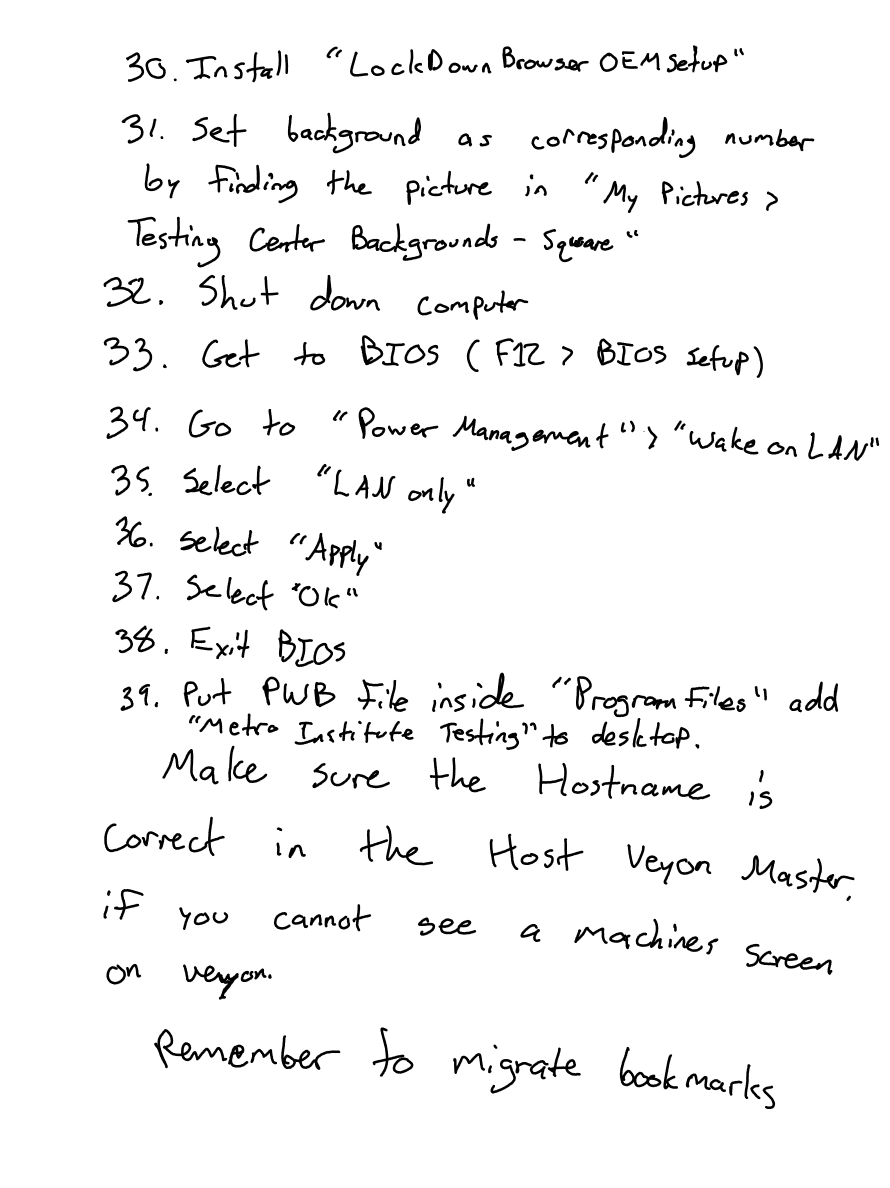 30. Install "LockDown Browser OEM Setup"
31. Set background as corresponding number
by finding the picture in "My Pictures >
Testing Center Backgrounds - Square"
32. Shut down computer
33. Get to BIOS (F12 > BIOS setup)
34. Go to "Power Management" > "Wake on LAN"
35. Select "LAN only"
36. Select "Apply"
37. Select "Ok"
38. Exit BIOS
39. Put PWB file inside "Program Files" add
"Metro Institute Testing" to desktop.
Make sure the Hostname is
correct in the Host Veyon Master.
if you cannot see a machines screen
on veyon.
Remember to migrate bookmarks